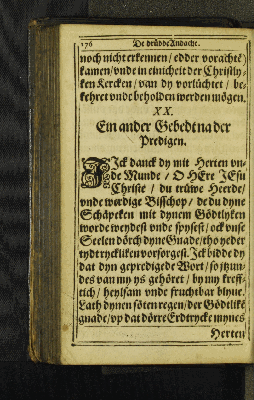 176 De drüdde Andacht.
noch nicht erkennen / edder vorachtẽ
kamen / vnde in einicheit der Christly-
ken Kercken / van dy vorlüchtet / be-
kehret vnde beholden werden mögen.
XX.
Ein ander Gebedt na der
Predigen.
ICk danck dy mit Herten vn-
de Munde / O HEre JEsu
Christe / du trüwe Heerde /
vnde werdige Bisschop / de du dyne
Schäpeken mit dynem Gödtlyken
worde weydest vnde spysest / ock vnse
Seelen dörch dyne Gnade / tho yeder
tydt ryckliken vorsorgest. Ick bidde dy
dat dyn gepredigede Wort / so itzun-
des van my ys gehöret / by my kreff-
tich / heylsam vnde fruchtbar blyue.
Lath dynen söten regen / der Gödtlikẽ
gnade / vp dat dörre Erdtrycke mynes
Herten